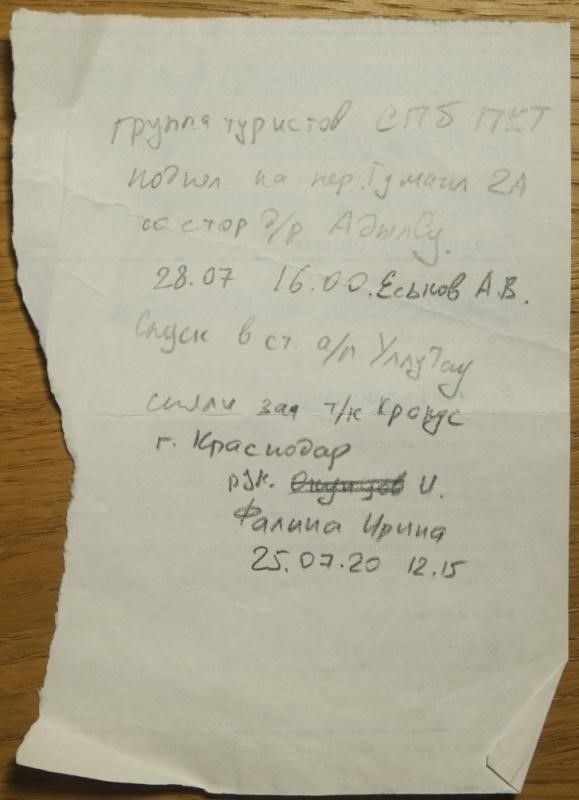 Группа туристов СПБ ПКТ
подня. на пер. Гумачи 2А
со стор д/р АдылСу.
28.07 16.00. Еськов А.В.
Спуск в ст. а/л УллуТау
сняли зап т/к Крокус
г. Краснодар
рук. И.
Фалина Ирина
25.07.20 12.15